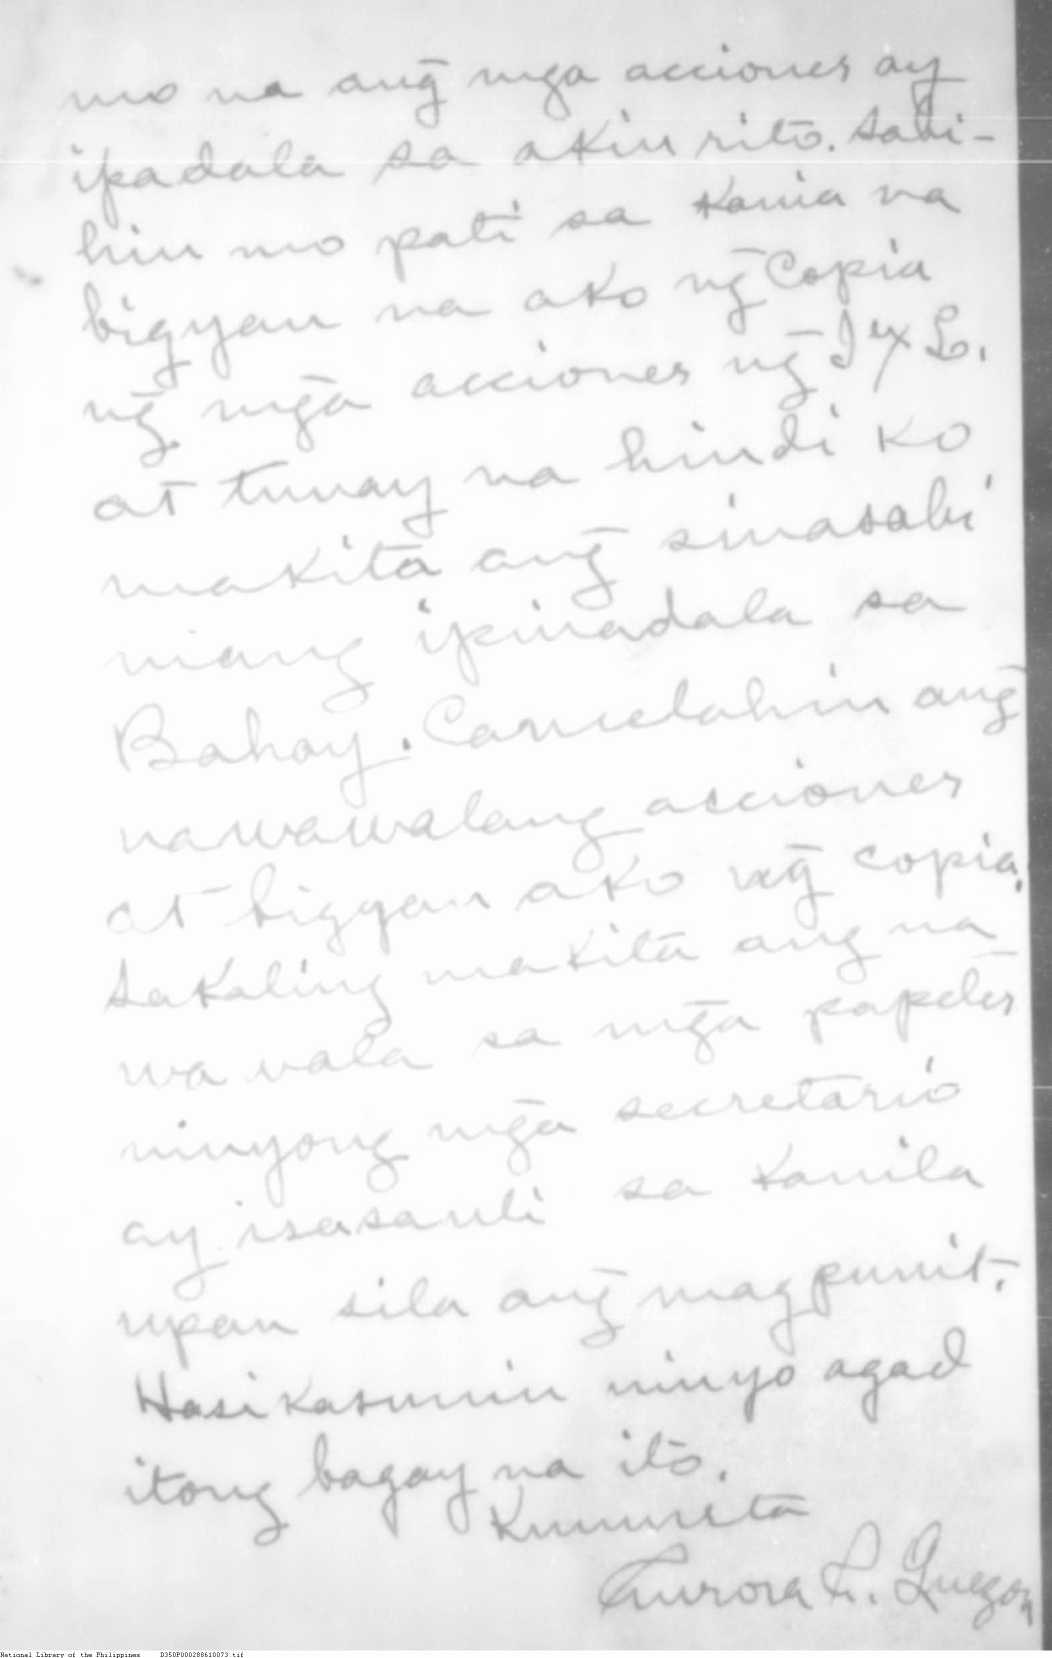 mo na ang̃ mga acciones ay
ipadala sa akin rito. Sabi-
hin mo pati sa kania na
bigyan na ako ng̃ Copia
ng̃ mg̃a acciones ng̃ I X L.
at tunay na hindi ko
makita ang̃ sinasabi
niang ipinadala sa
Bahay. Cancelahin ang̃
nawawalang acciones
at bigyan ako ng̃ copia.
Sakaling makita ang na-
wawala sa mg̃a papeles
ninyong mg̃a secretario
ay isasauli sa kanila
upan sila ang̃ magpunit.
Hasikasuniin ninyo agad
itong bagay na ito.
Aurora A. Quezon
National Library of the Philippines D350P000288610073.tif